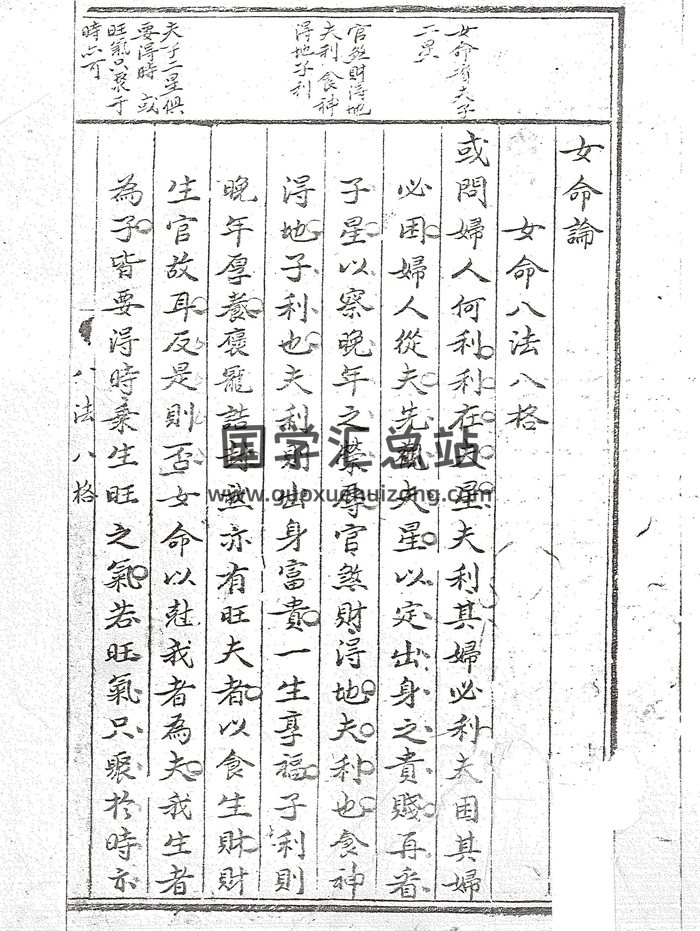 女命有夫子
二星
官煞財得地
夫利食神
得地子利
夫子二星俱
要得時或
旺氣只聚于
時亦可
女命論
女命八法八格
或問婦人何利利在夫星夫利其婦必利夫困其婦
必困婦人從夫先觀夫星以定出身之貴賤再看
子星以察晚年之榮辱官煞財得地夫利也食神
得地子利也夫利則出身富貴一生享福子利則
晚年厚養褒寵誥封然亦有旺夫者以食生財財
生官故耳反是則否女命以尅我者為夫我生者
為子皆要得時乘生旺之氣若旺氣只聚於時亦
八法八格
国学汇总站
www.guoxuehuizong.com